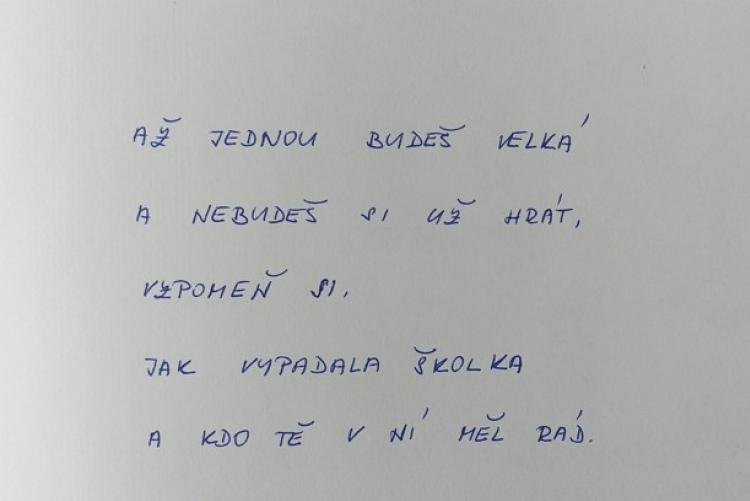 AŽ JEDNOU BUDEŠ VELKÁ
A NEBUDEŠ SI UŽ HRÁT,
VZPOMEŇ SI,
JAK VYPADALA ŠKOLKA
A KDO TĚ V NÍ MĚL RÁD.